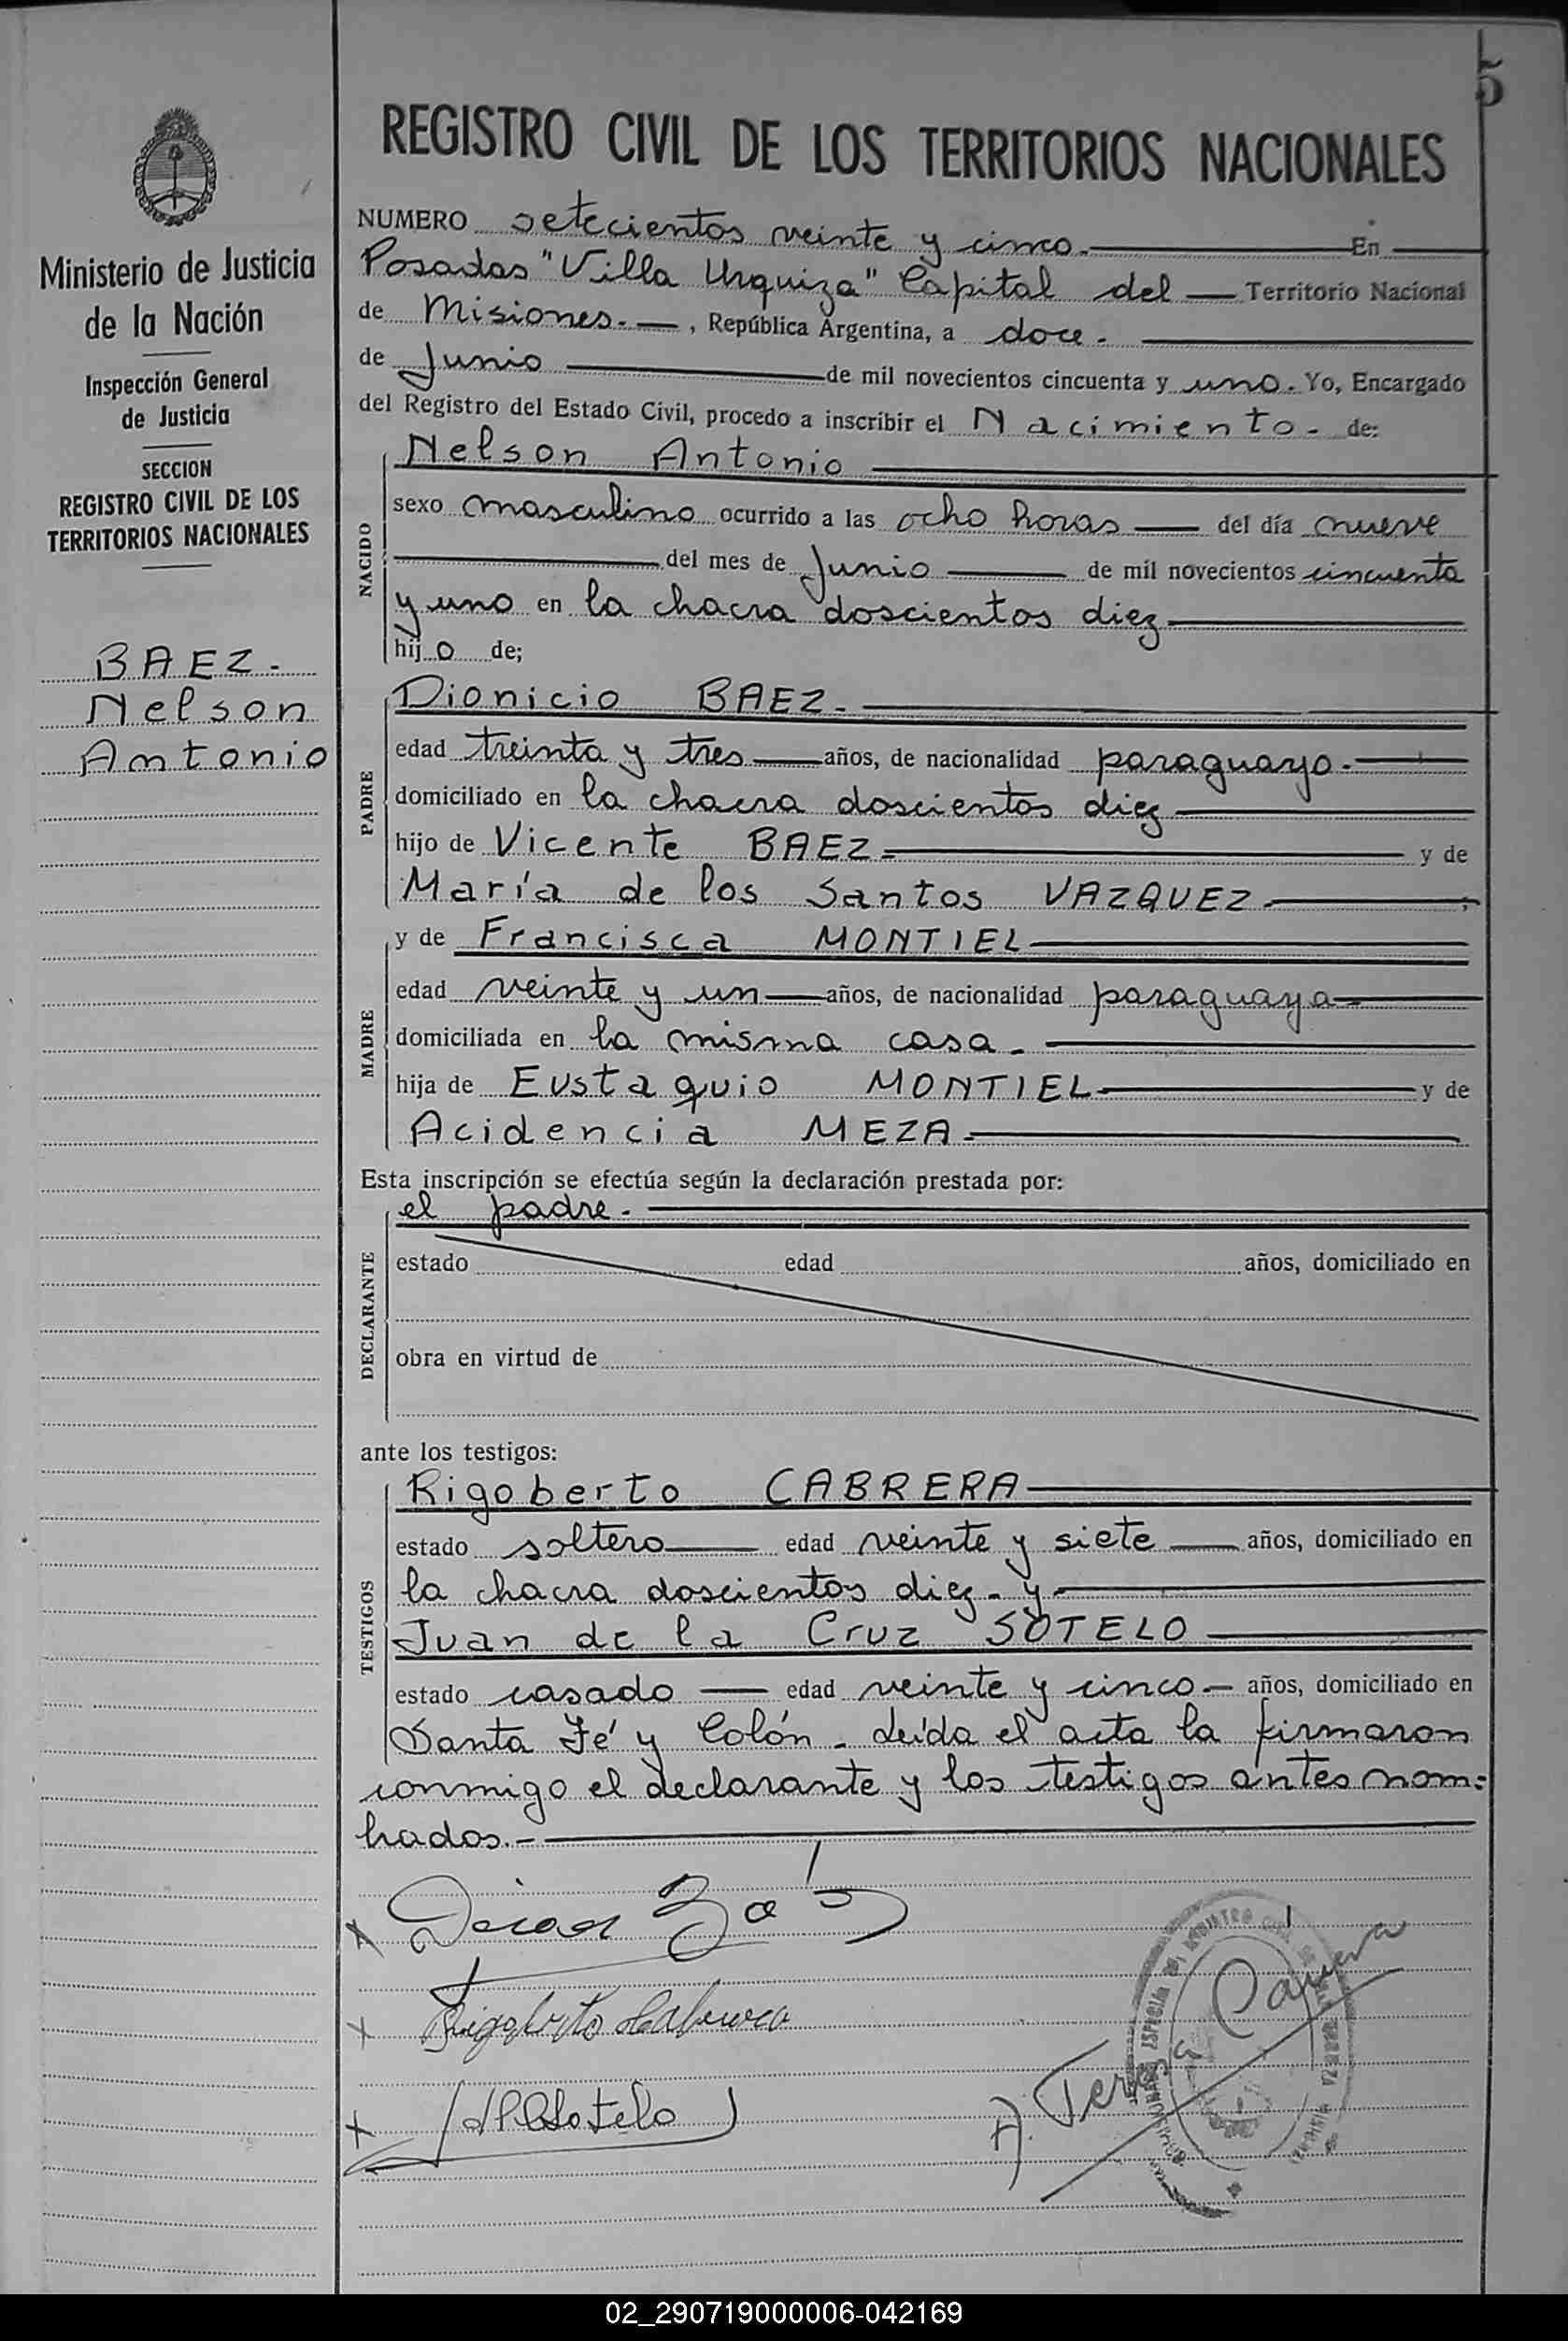 5
REGISTRO CIVIL DE LOS TERRITORIOS NACIONALES
Ministerio de Justicia
de la Nación
Inspección General
de Justicia
SECCION
REGISTRO CIVIL DE LOS
TERRITORIOS NACIONALES
BAEZ.
Nelson
Antonio
NUMERO setecientos veinte y cinco. En
Posadas "Villa Urquiza" Capital del Territorio Nacional
de Misiones. , República Argentina, a doce.
de Junio de mil novecientos cincuenta y uno. Yo, Encargado
del Registro del Estado Civil, procedo a inscribir el Nacimiento. de:
NACIDO
Nelson Antonio
sexo masculino ocurrido a las ocho horas del día nueve
del mes de Junio de mil novecientos cincuenta
y uno en la chacra doscientos diez
hijo de;
PADRE
Dionicio BAEZ.
edad treinta y tres años, de nacionalidad paraguayo.
domiciliado en la chacra doscientos diez
hijo de Vicente BAEZ y de
María de los Santos VAZQUEZ ;
MADRE
y de Francisca MONTIEL
edad veinte y un años, de nacionalidad paraguaya
domiciliada en la misma casa.
hija de Eustaquio MONTIEL y de
Acidencia MEZA.
Esta inscripción se efectúa según la declaración prestada por:
DECLARANTE
el padre.
estado edad años, domiciliado en
obra en virtud de
ante los testigos:
TESTIGOS
Rigoberto CABRERA
estado soltero edad veinte y siete años, domiciliado en
la chacra doscientos diez. y
Juan de la Cruz SOTELO
estado casado edad veinte y cinco. años, domiciliado en
Santa Fé y Colón. Leída el acta la firmaron
conmigo el declarante y los testigos antes nom=
brados.-
Rigoberto Cabrera
Sotelo
Teresa
02_290719000006-042169